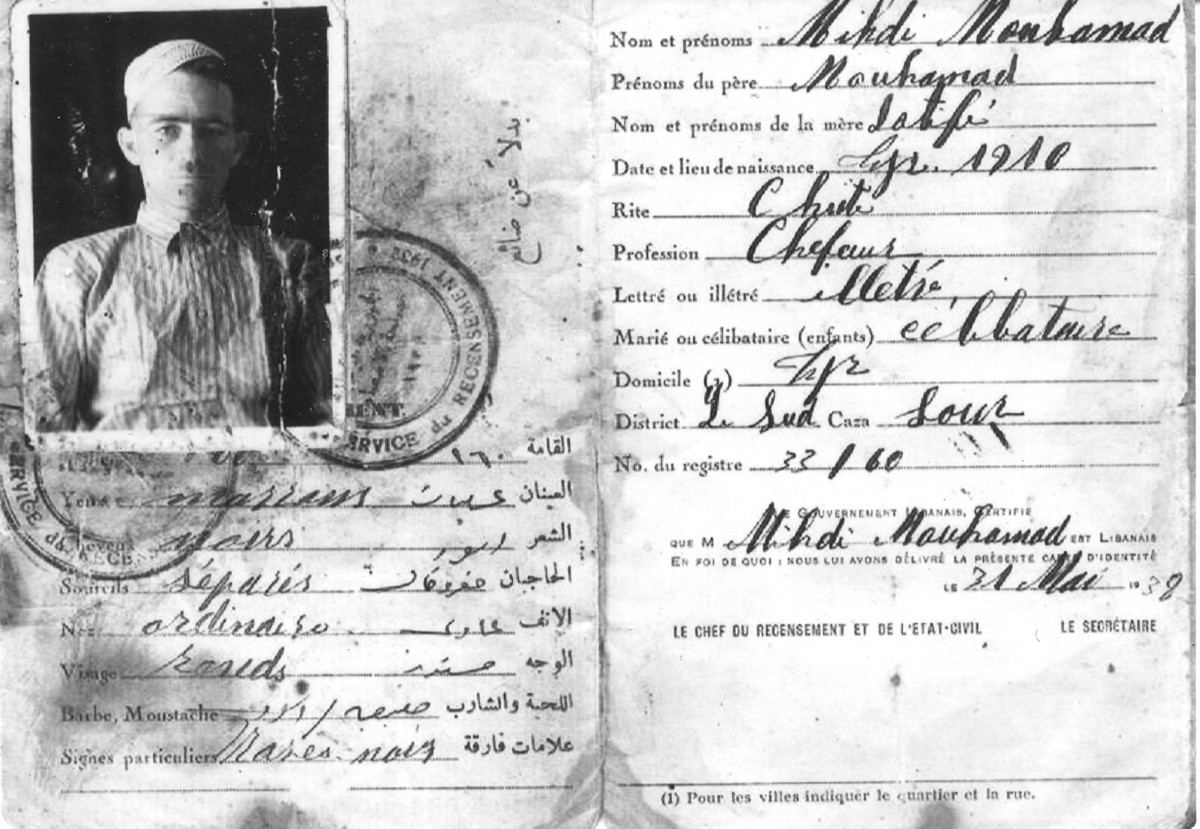 بدلاً عن ضائع
RECENSEMENT 1932
SERVICE du
SERVICE du
القامة ١٦٠
Yeux marrons العينان
Cheveux noirs الشعر اسود
Sourcils séparés الحاجبان مفروقان
Nez ordinaire الانف عادي
Visage ronds الوجه
Barbe, Moustache اللحية والشارب
Signes particuliers Rases noir علامات فارقة
Nom et prénoms Mihdi Mouhamad
Prénoms du père Mouhamad
Nom et prénoms de la mère Latifé
Date et lieu de naissance Tyr. 1910
Rite Chiite
Profession Chefeur
Lettré ou illétré illetré
Marié ou célibataire (enfants) célibataire
Domicile (1) Tyr
District Le Sud Caza Sour
No. du registre 33/60
LE GOUVERNEMENT LIBANAIS, CERTIFIE
QUE M Mihdi Mouhamad EST LIBANAIS
EN FOI DE QUOI : NOUS LUI AVONS DÉLIVRÉ LA PRÉSENTE CARTE D'IDENTITÉ
LE 31 Mai 1938
LE CHEF DU RECENSEMENT ET DE L'ETAT-CIVIL LE SECRÉTAIRE
(1) Pour les villes indiquer le quartier et la rue.